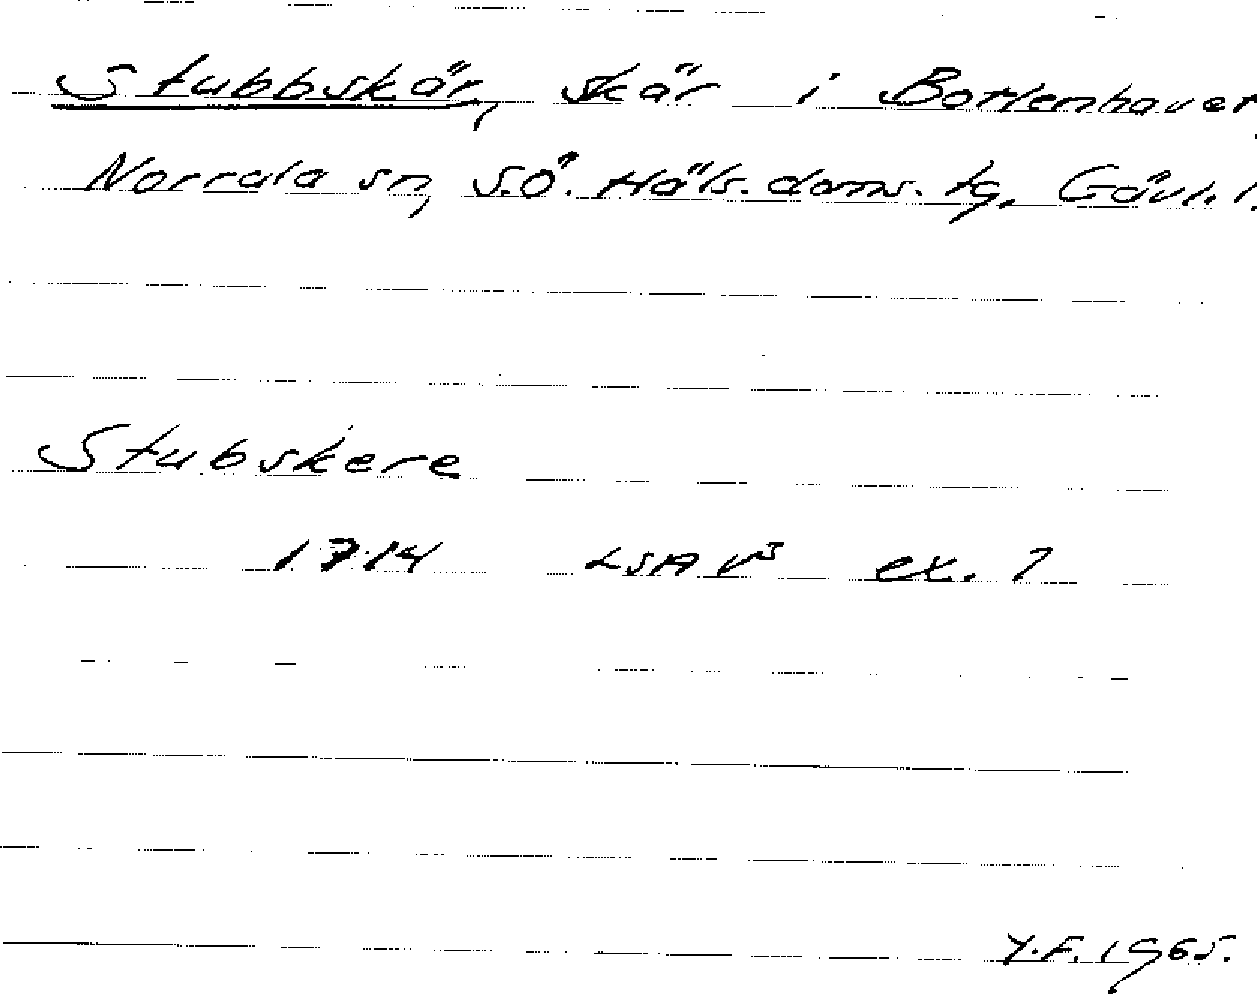 Stubbskär, skär i Bottenhavet,
Norrala sn, S.Ö. Häls. doms. tg, Gävl. l.
Stubskere
1714 LSA V⁵ ex. ?
Y.F. 1965.